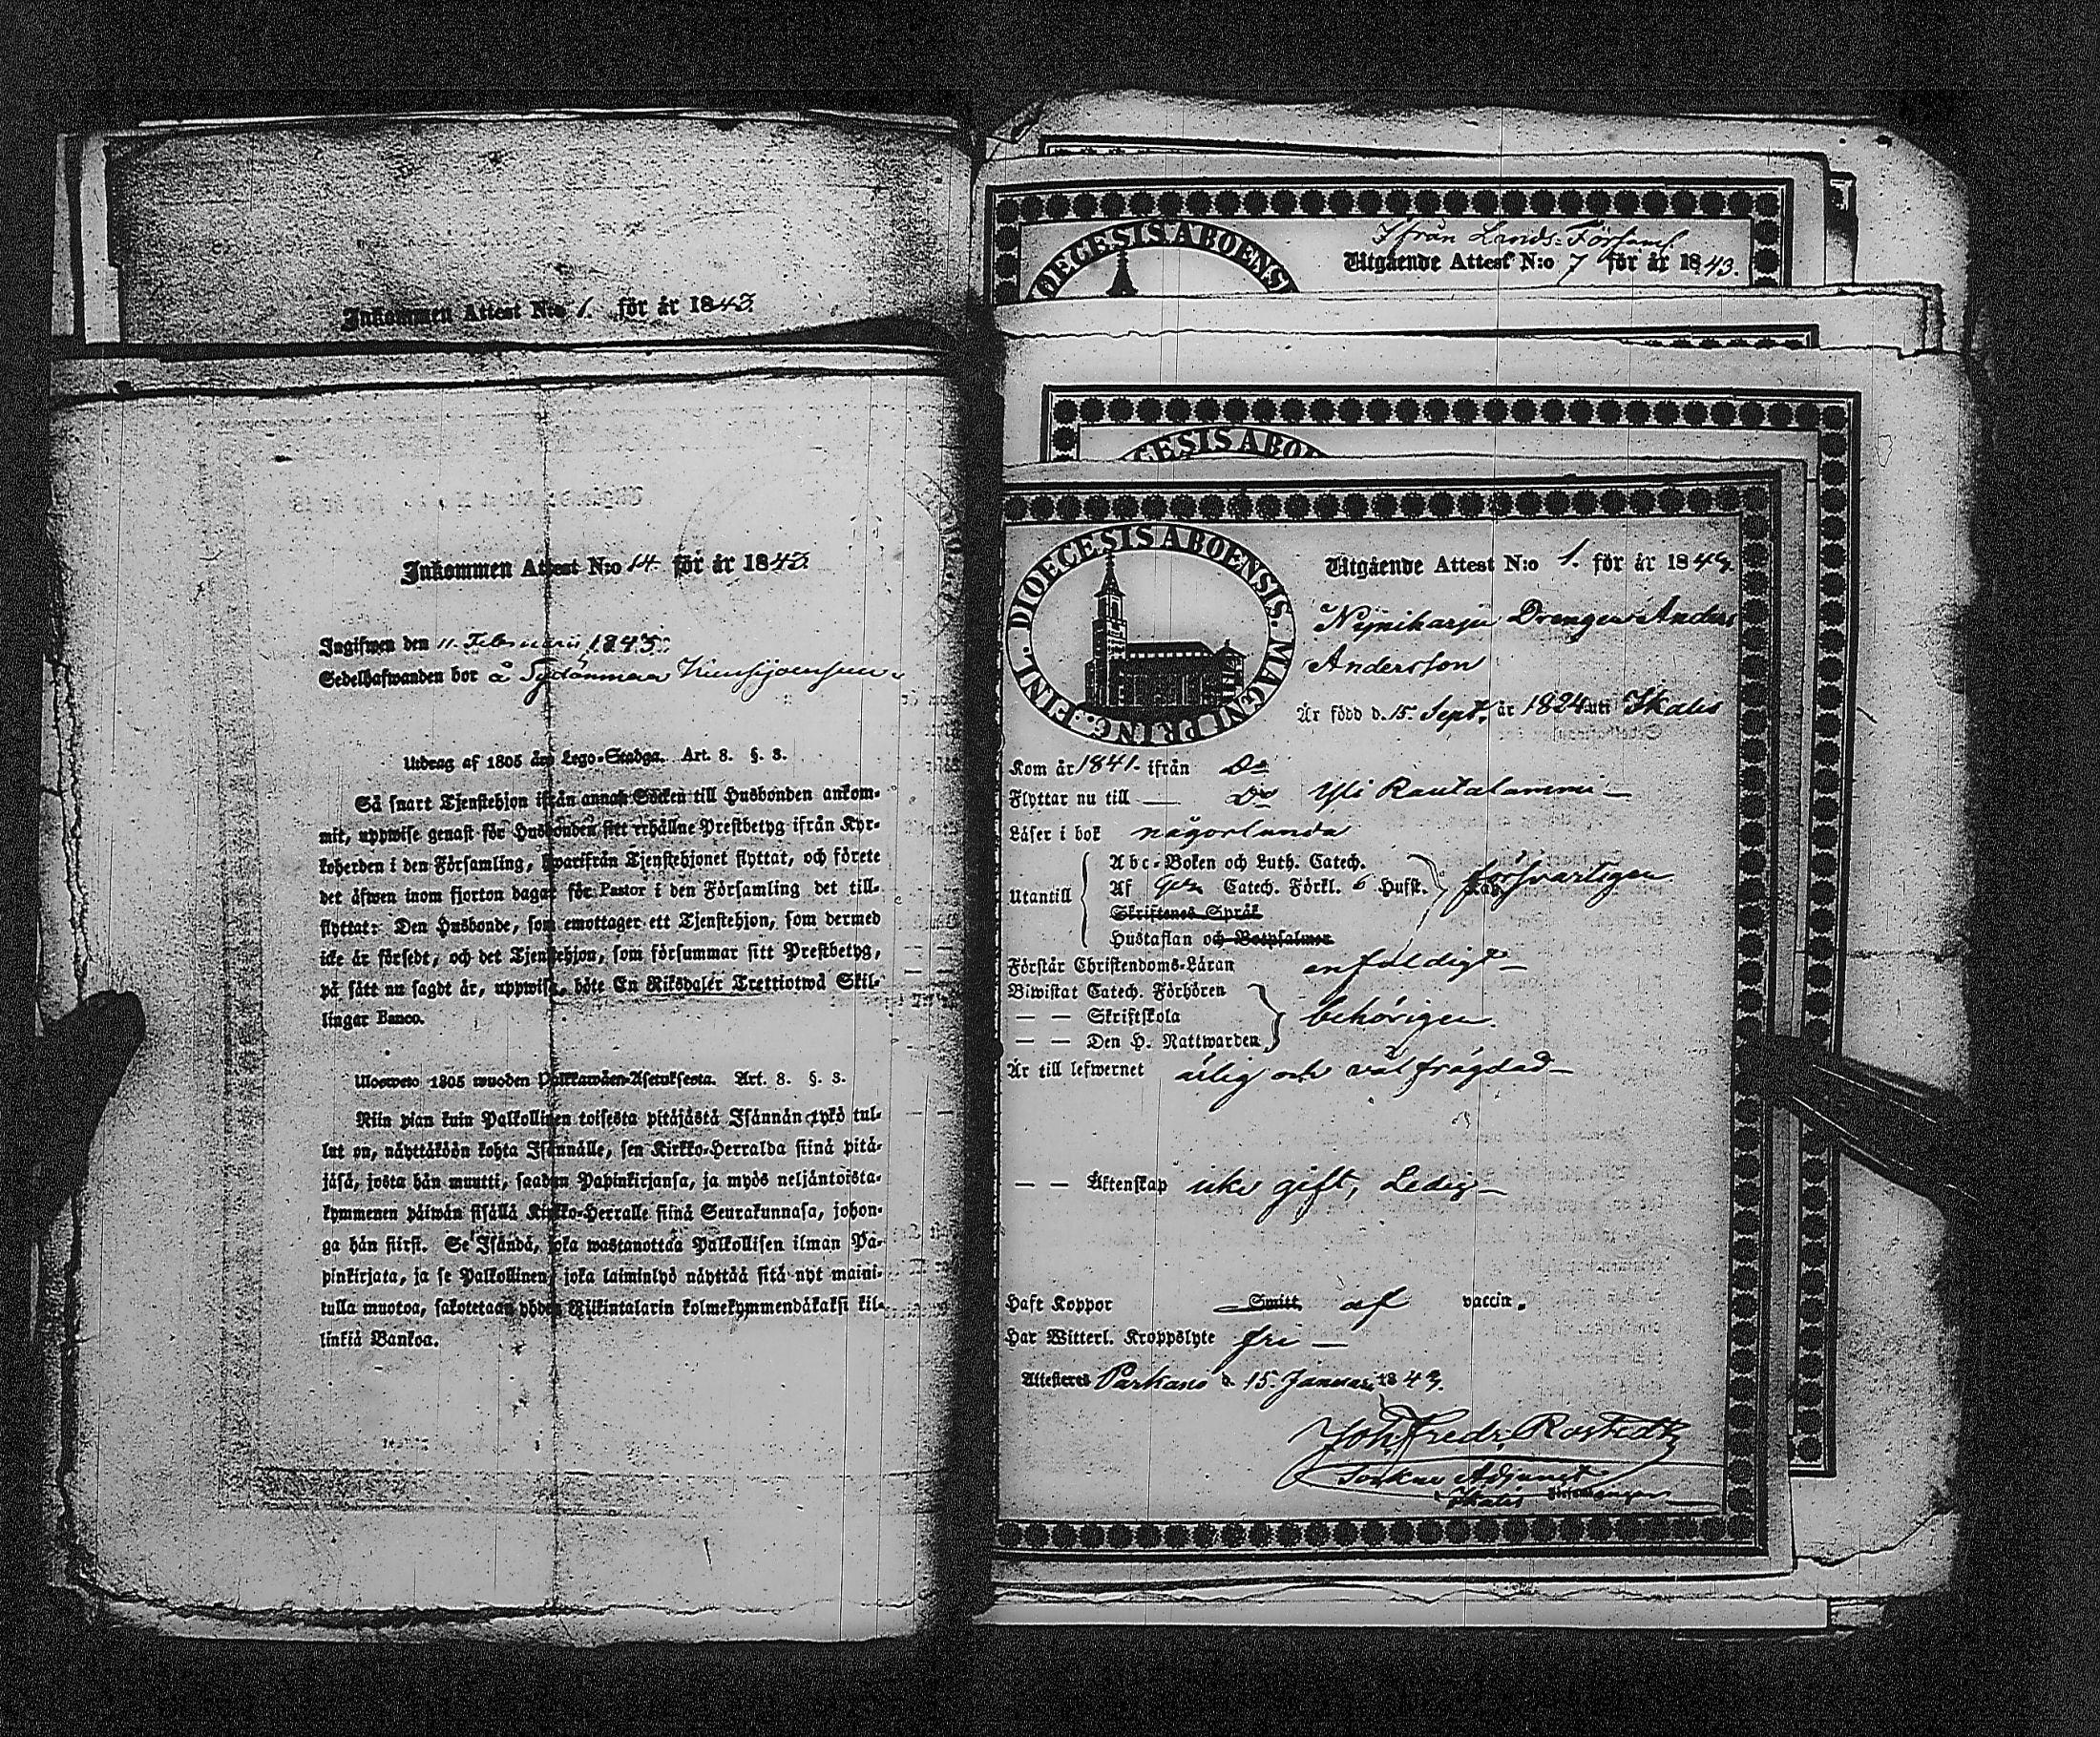 Inkommen Attest N:o 1. för år 1843.
Inkommen Attest N:o 14 för år 1843.
Ingifwen den 11. Februarii 1843.
Sedelhafwanden bor å
Utdrag af 1805 års Lego-Stadga. Art. 8. §. 3.
Så snart Tjenstehjon ifrån annan Socken till Husbonden ankom-
mit, uppwise genast för Husbonden sitt erhållne Prestbetyg ifrån Kyr-
koherden i den Församling, hwarifrån Tjenstehjonet flyttat, och förete
det äfwen inom fjorton dagar för Pastor i den Församling det till-
flyttat: Den Husbonde, som emottager ett Tjenstehjon, som dermed
icke är försedt, och det Tjenstehjon, som försummar sitt Prestbetyg,
på sätt nu sagdt är, uppwisa, böte En Riksdaler Trettiotwå Skil-
lingar Banco.
Wuoweto 1805 wuoden Palkkawäen-Asetuksesta. Art. 8. §. 3.
Niin pian kuin Palkollinen toisesta pitäjästä Isännän tykö tul-
lut on, näyttäköön kohta Isännälle, sen Kirkko-Herralda siinä pitä-
jäsä, josta hän muutti, saadun Papinkirjansa, ja myös neljäntoista-
kymmenen päiwän sisällä Kirkko-Herralle siinä Seurakunnasa, johon-
ga hän siirsi. Se Isändä, joka wastanottaa Palkollisen ilman Pa-
pinkirjata, ja se Palkollinen, joka laiminlyö näyttää sitä nyt maini-
tulla muotoa, sakotetaan yhden Riikintalarin kolmekymmendäkaksi kil-
linkiä Bankoa.
DIOECESIS ABOENSI
7 från Lands-Församl
Utgående Attest N:o 7 för år 1843.
CESIS ABO
DIOECESIS ABOENSIS. MAGNI PRINC. FINL.
Utgående Attest N:o 1. för år 1843.
Drengen Anders
Andersson
Är född d. 15. Sept. år 1824 uti Ikalis
Kom år 1841. ifrån Do
Flyttar nu till — Do Yli Rautalammi —
Läser i bok någorlunda
Utantill
Abc-Boken och Luth. Catech.
Af Gez. Catech. Förkl. 6 Hufst. försvarligen
Skriftenes Språk
Hustaflan och Botpsalmer
Förstår Christendoms-Läran enfaldigt —
Biwistat Catech. Förhören
— — Skriftskola behörigen.
— — Den H. Nattwarden
Är till lefwernet ärlig och väl frägdad —
— — Äktenskap icke gift, Ledig —
Haft Koppor Smitt, af vaccin.
Har Witterl. Kroppslyte fri —
Attesteres Parkano d. 15. Januari 1843.
Joh. Fredr. Rostedt
Sockne Adjunct
Ikalis